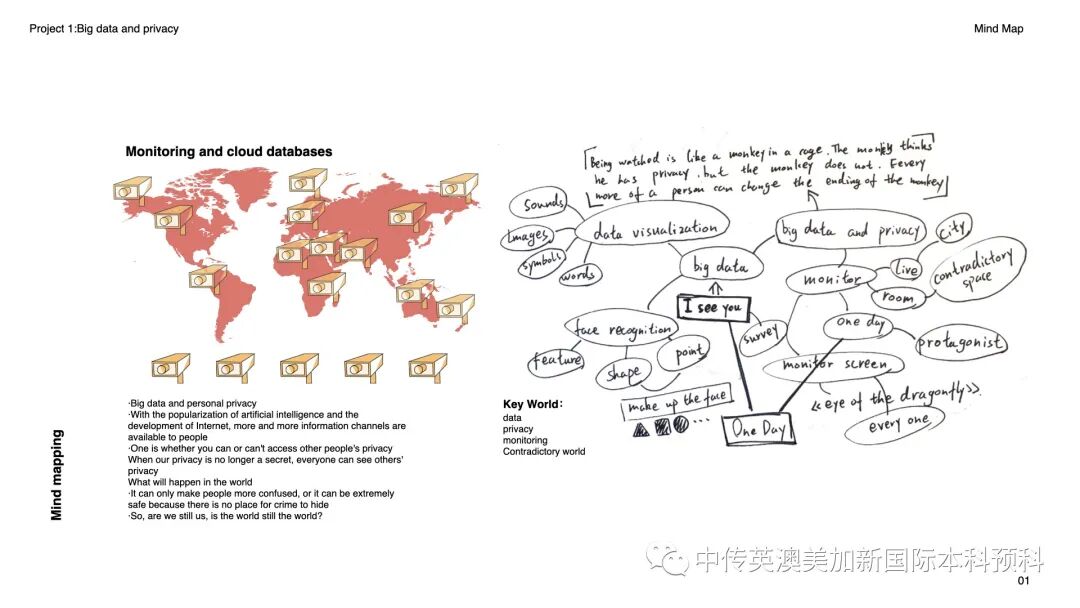 Project 1:Big data and privacy
Mind Map
Monitoring and cloud databases
·Big data and personal privacy
·With the popularization of artificial intelligence and the
development of Internet, more and more information channels are
available to people
·One is whether you can or can't access other people's privacy
When our privacy is no longer a secret, everyone can see others'
privacy
What will happen in the world
·It can only make people more confused, or it can be extremely
safe because there is no place for crime to hide
·So, are we still us, is the world still the world?
Mind mapping
Being watched is like a monkey in a cage. The monkey thinks
he has privacy. but the monkey does not. Eevery
more of a person can change the ending of the monkey
Sounds
Images
symbols
words
data visualization
big data and privacy
big data
city
live
room
monitor
contradictory
space
I see you
face recognition
feature
shape
point
survey
one day
protagonist
monitor screen
《eye of the dragonfly》
every one
make up the face
...
One Day
Key World:
data
privacy
monitoring
Contradictory world
中传英澳美加新国际本科预科
01